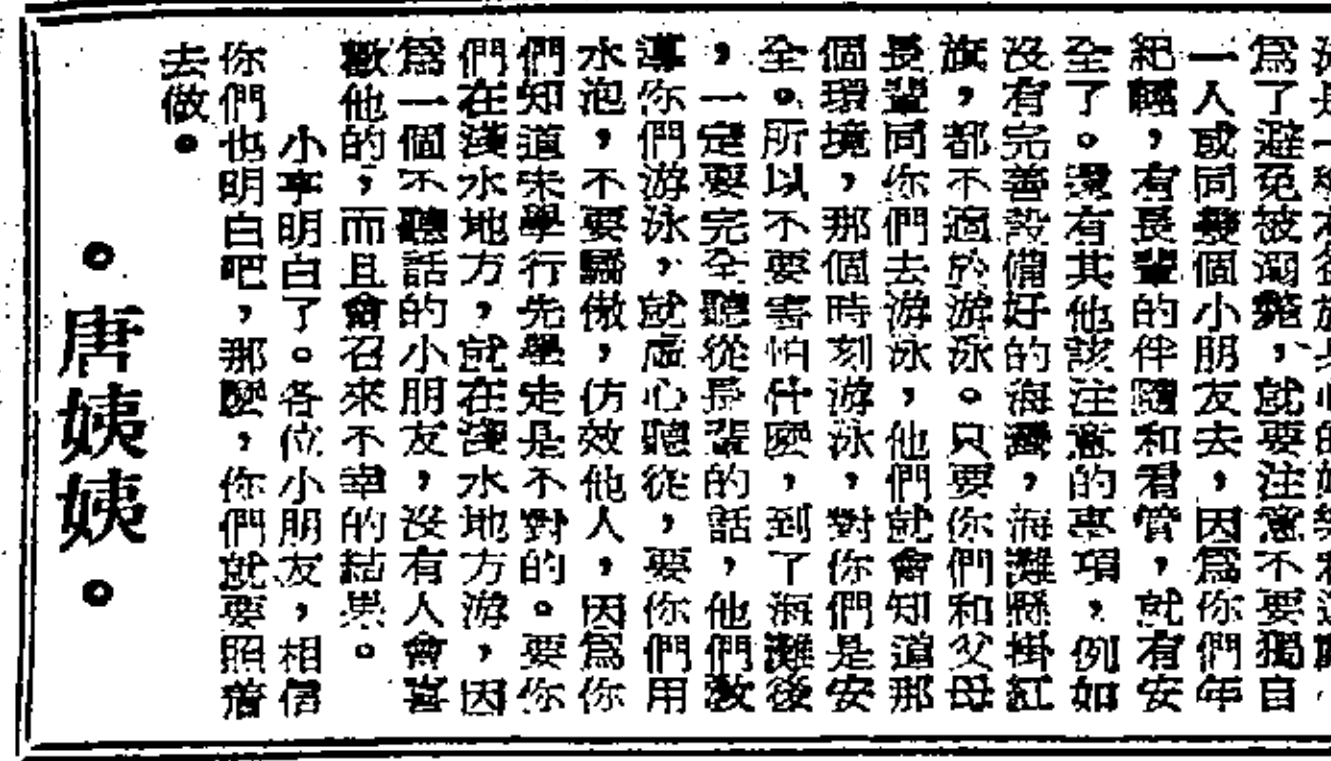 爲了避免被溺斃,就要注意不要獨自
一人或同幾個小朋友去,因爲你們年
紀輕,有長輩的伴隨和看管,就有安
全了。還有其他該注意的事項,例如
沒有完善設備好的海灣,海灘懸掛紅
旗,都不適於游泳。只要你們和父母
長輩同你們去游泳,他們就會知道那
個環境,那個時刻游泳,對你們是安
全。所以不要害怕什麽,到了海灘後
,一定要完全聽從長輩的話,他們教
導你們游泳,就虛心聽從,要你們用
水泡,不要驕傲,仿效他人,因爲你
們知道未學行先學走是不對的。要你
們在淺水地方,就在淺水地方游,因
爲一個不聽話的小朋友,沒有人會喜
歡他的,而且會召來不幸的結果。
小事明白了。各位小朋友,相信
你們也明白吧,那麽,你們就要照着
去做。
。唐姨姨。